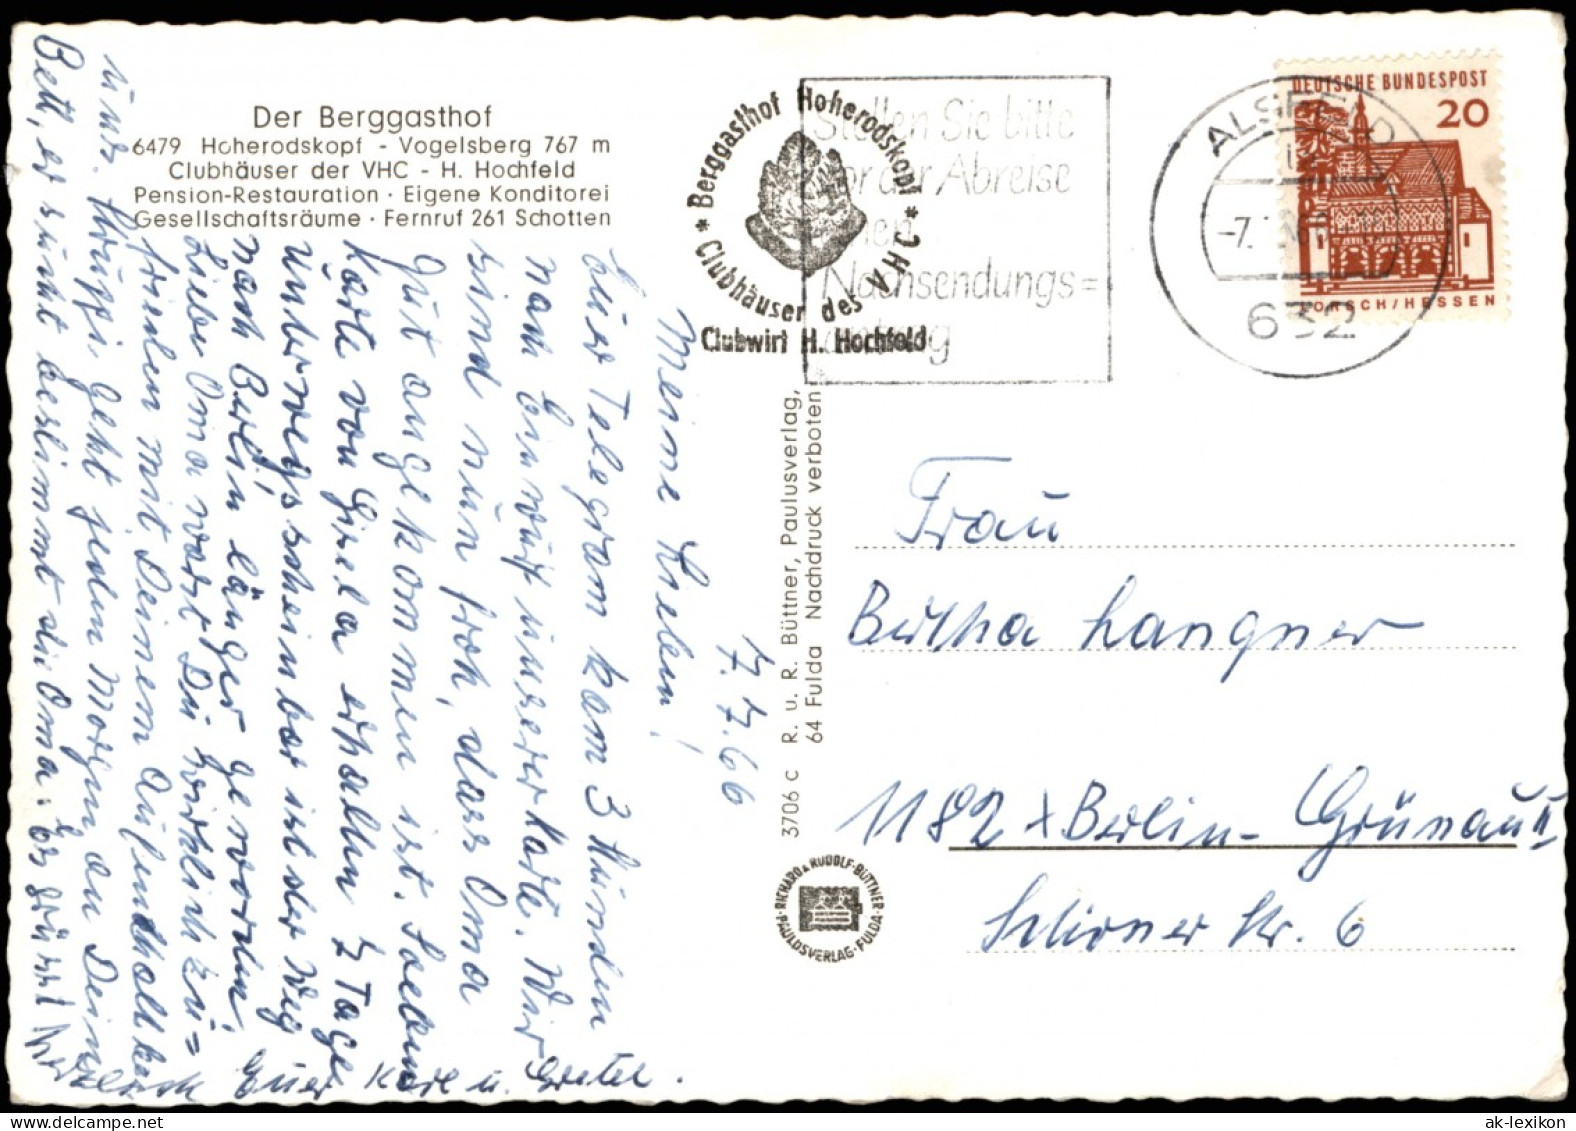 Der Berggasthof
6479 Hoherodskopf - Vogelsberg 767 m
Clubhäuser der VHC - H. Hochfeld
Pension-Restauration · Eigene Konditorei
Gesellschaftsräume · Fernruf 261 Schotten
* Berggasthof Hoherodskopf *
Clubhäuser des VHC
Clubwirt H. Hochfeld
Stellen Sie bitte
vor der Abreise
einen
Nachsendungs=
antrag
ALSFELD
-7.
632
DEUTSCHE BUNDESPOST
20
LORSCH/HESSEN
7.7.66
Meine Lieben!
Euer Telegram kam 3 Stunden
nach Einwurf unserer Karte. Wir
sind nun froh, dass Oma
gut angekommen ist. Soeben
Karte von Gisela erhalten 7 Tage
unterwegs scheinbar ist der Weg
nach Berlin länger geworden.
Liebe Oma warst Du wirklich zu=
frieden mit Deinem Aufenthalt bei
uns. geht jeden Morgen an Dein
Bett, er sucht bestimmt die Oma. Es grüsst
herzlich Euer Karl u. Gretel.
3706 c R. u. R. Büttner, Paulusverlag,
64 Fulda Nachdruck verboten
· RICHARD & RUDOLF · BÜTTNER ·
PAULUSVERLAG · FULDA
Frau
Bertha Langner
1182 x Berlin-Grünau
Schirner Str. 6
ak-lexikon